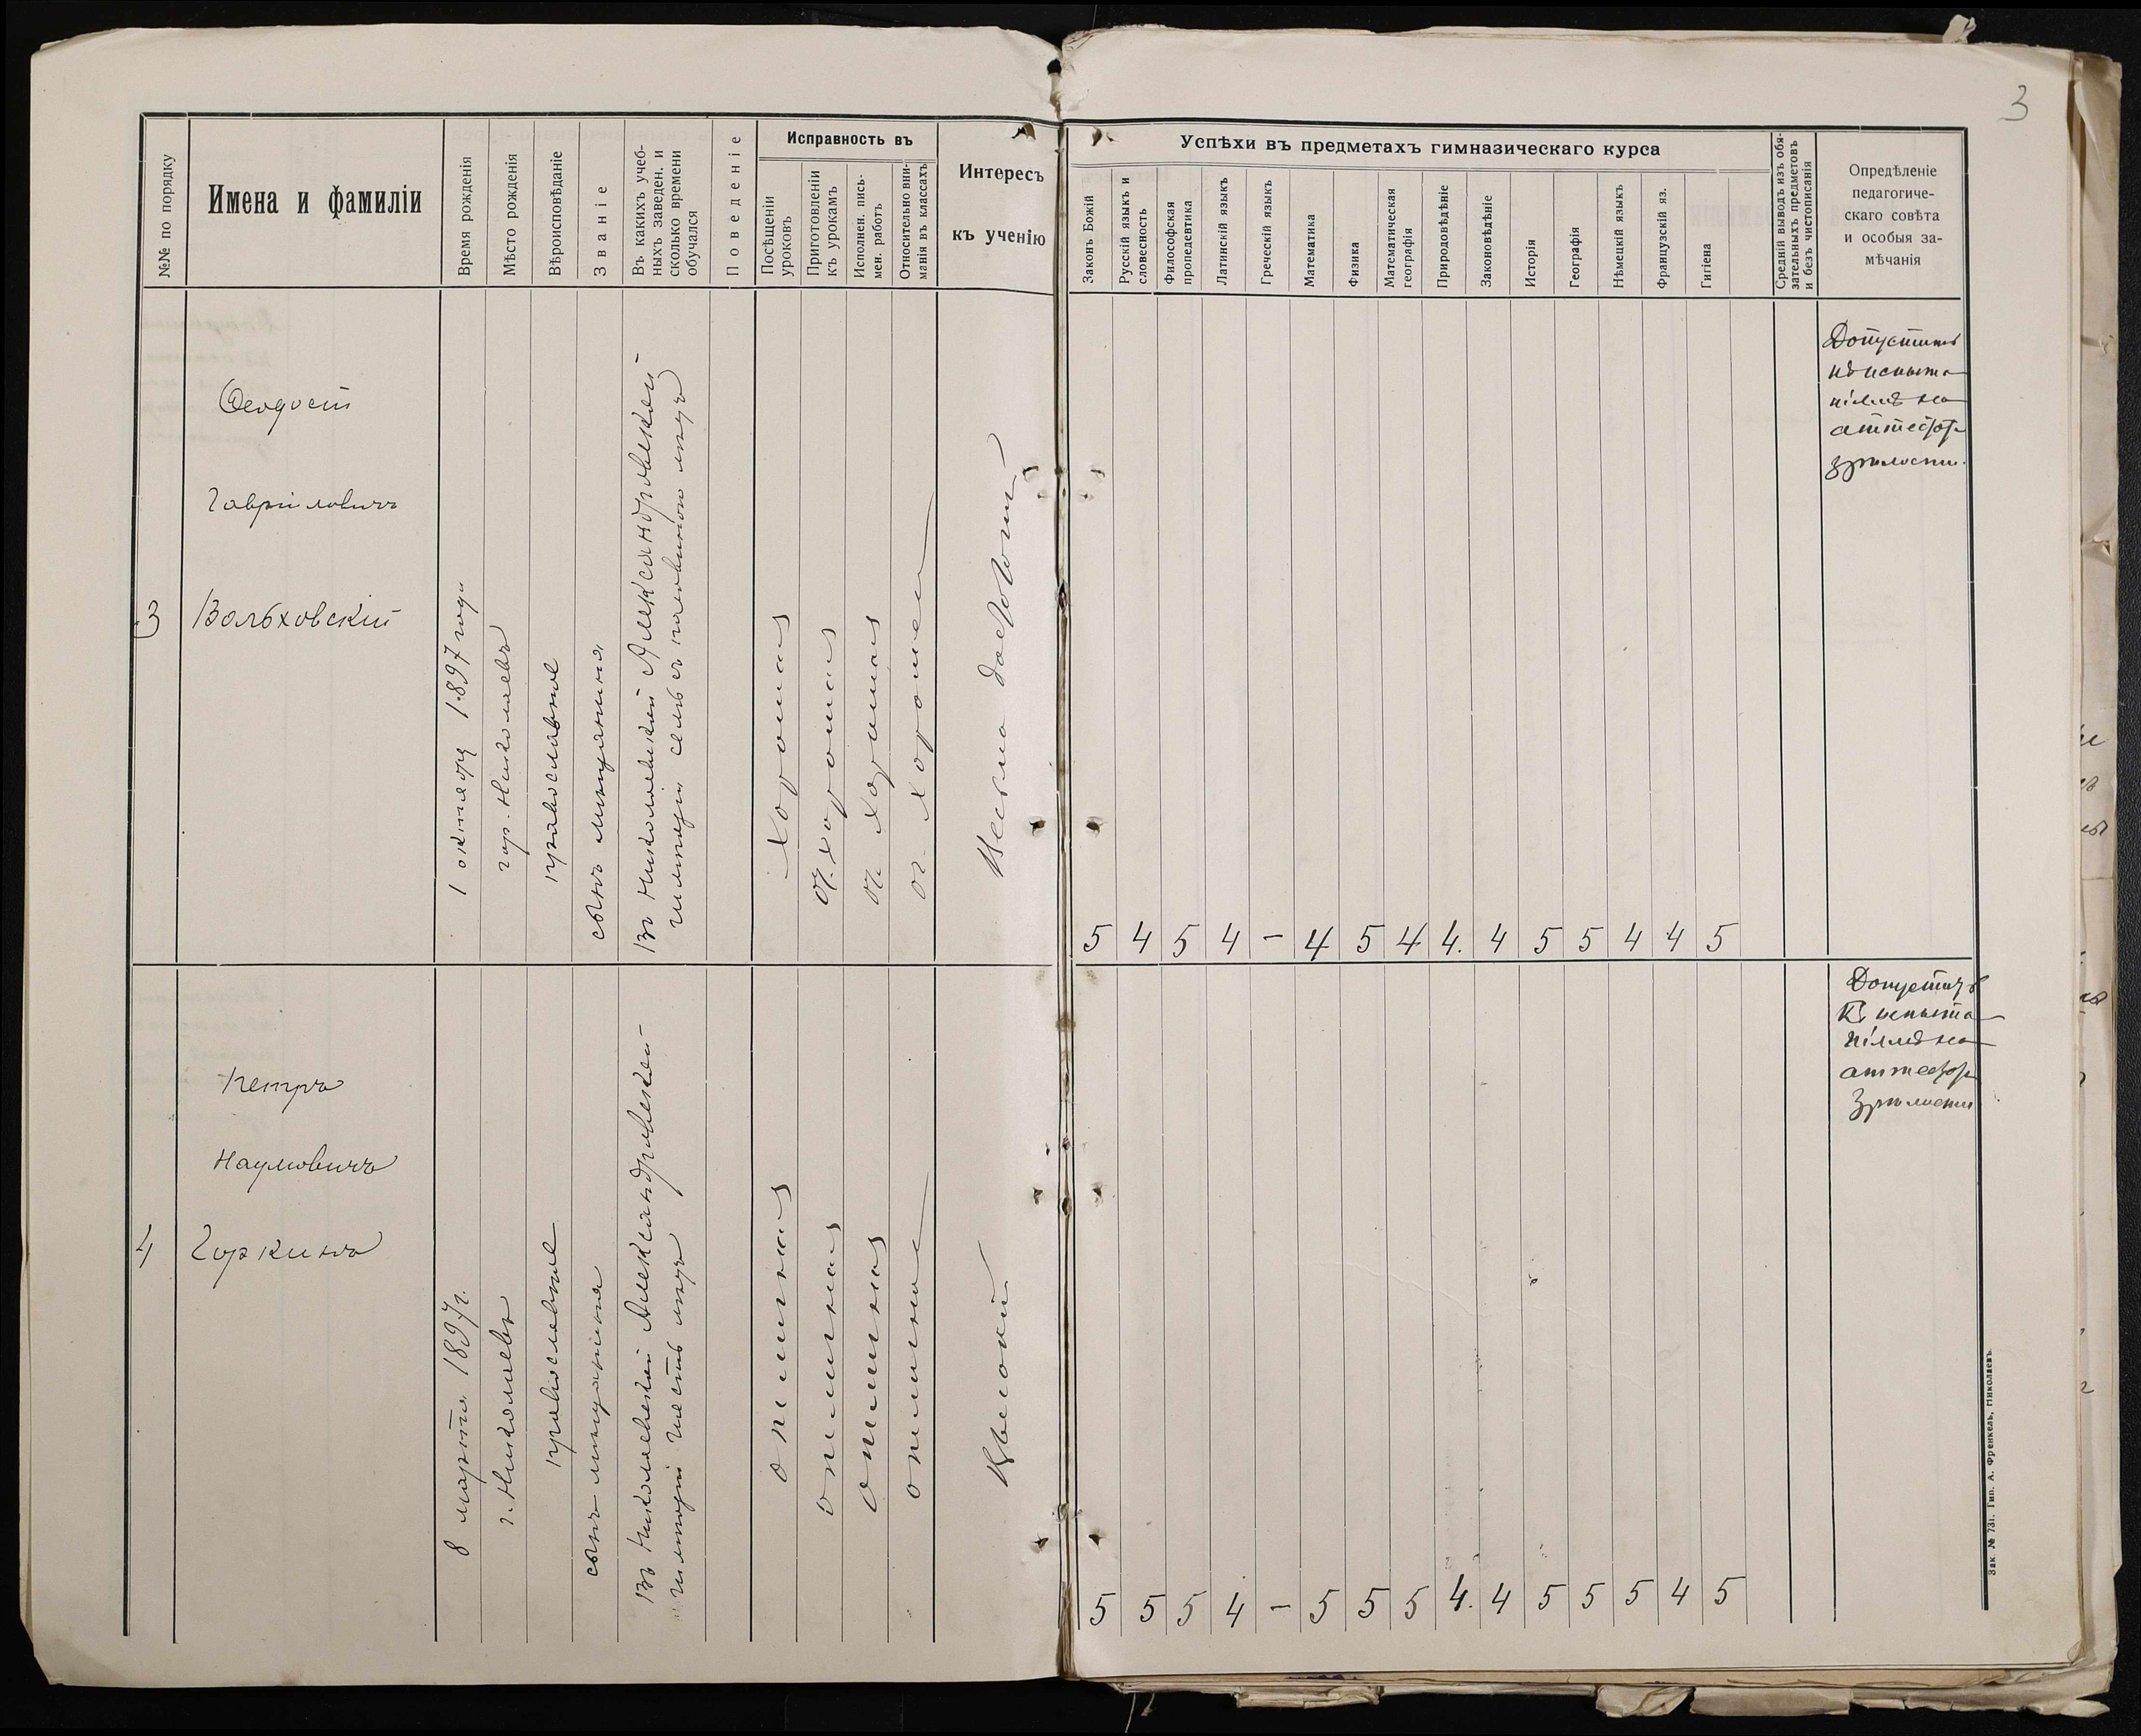 3
№№ по порядку
Имена и фамиліи
Время рожденія
Мѣсто рожденія
Вѣроисповѣданіе
Званіе
Въ какихъ учеб-
ныхъ заведен. и
сколько времени
обучался
Поведеніе
Исправность въ
Посѣщеніи
уроковъ
Приготовленіи
къ урокамъ
Исполнен. пись-
мен. работъ
Относительно вни-
манія въ классахъ
Интересъ
къ ученію
Успѣхи въ предметахъ гимназическаго курса
Законъ Божій
Русскій языкъ и
словесность
Философская
пропедевтика
Латинскій языкъ
Греческій языкъ
Математика
Физика
Математическая
географія
Природовѣдѣніе
Законовѣдѣніе
Исторія
Географія
Нѣмецкій языкъ
Французскій яз.
Гигіена
Средній выводъ изъ обя-
зательныхъ предметовъ
и безъ чистописанія
Опредѣленіе
педагогиче-
скаго совѣта
и особыя за-
мѣчанія
3
Ѳеодосій
Гавріиловичъ
Вольховскій
1 октября 1897 года
гор. Николаевъ
православное
сынъ мѣщанина
Въ Николаевской Александровской
гимназіи семь съ половиною лѣтъ
хорошая
оч. хорошая
оч. хорошая
оч. хорошее
Весьма достаточный
5 4 5 4 – 4 5 4 4. 4 5 5 4 4 5
Допустить
къ испыта-
ніямъ на
аттестатъ
зрѣлости.
4
Петръ
Наумовичъ
Горкинъ
8 марта 1897 г.
г. Николаевъ
православное
сынъ мѣщанина
Въ Николаевской Александровской
гимназіи шесть лѣтъ
отличная
отличная
отличная
отличное
Высокій
5 5 5 4 – 5 5 5 4. 4 5 5 5 4 5
Допустить
къ испыта-
ніямъ на
аттестатъ
зрѣлости
Зак. № 731. Тип. А. Френкель, Николаевъ.